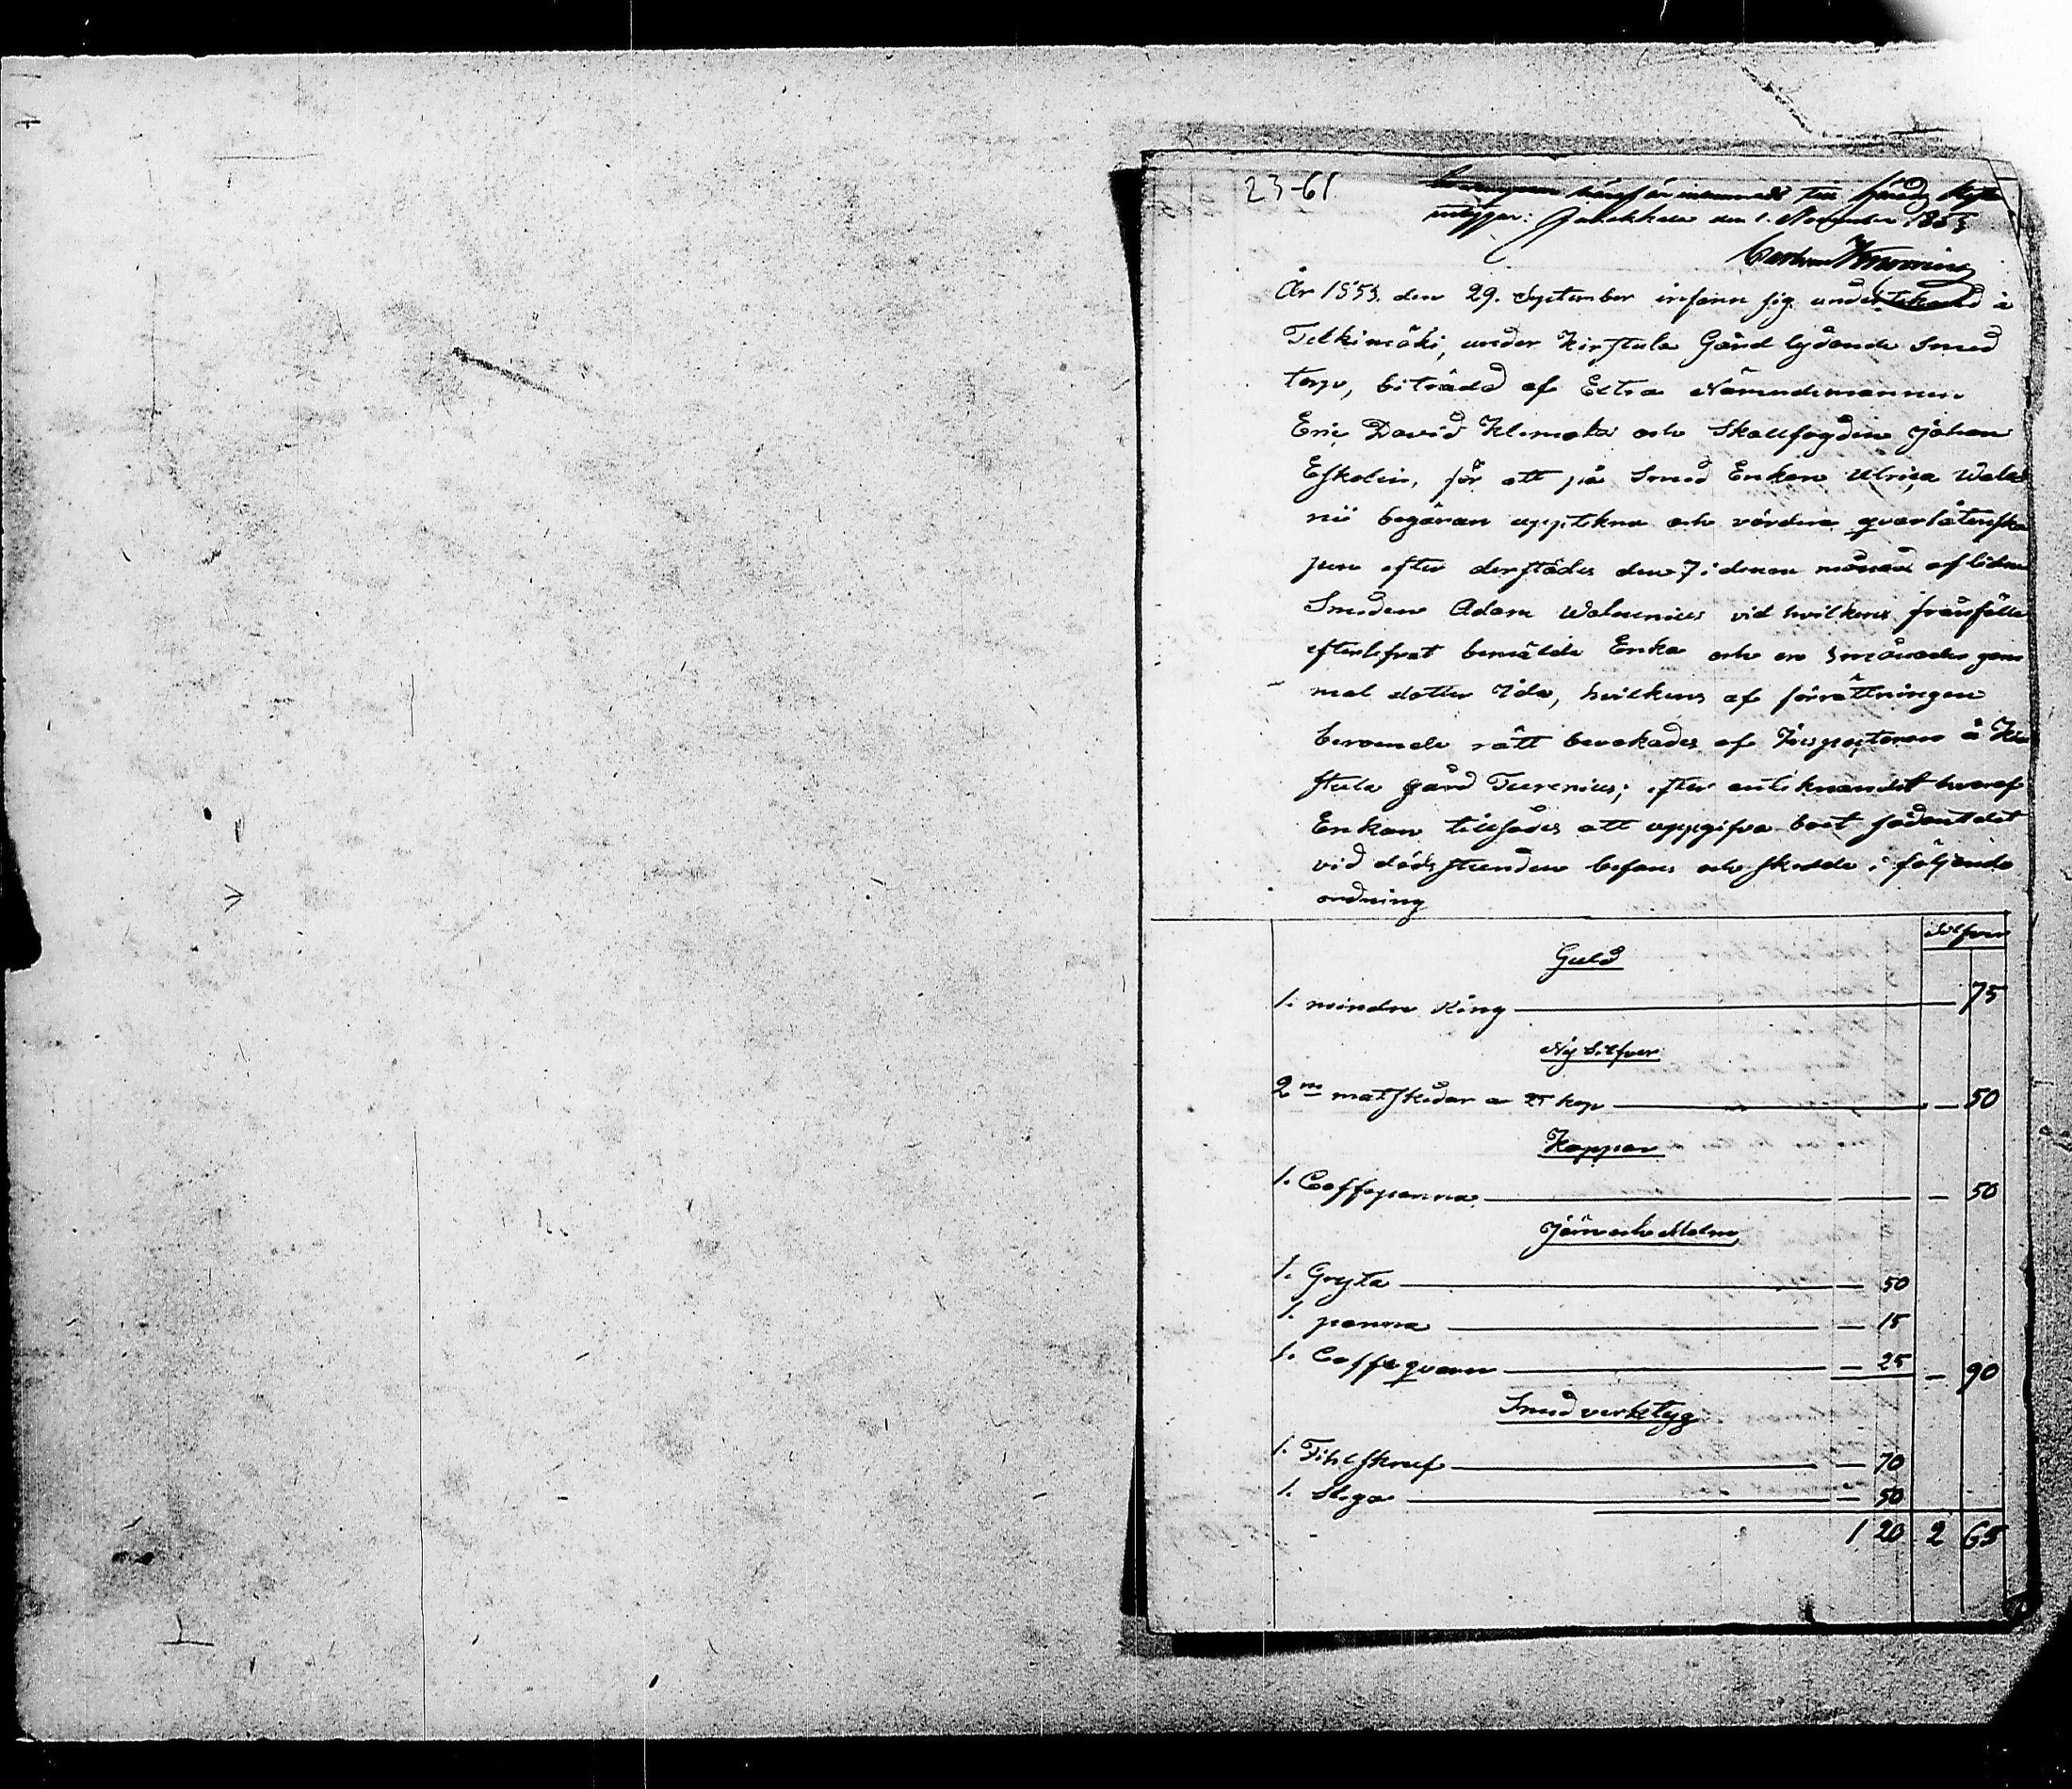 23-61.
till
Janakkala den 1. November 1853
År 1853. den 29. September infann sig undertecknad å
Tilkimäki, under Kirstula Gård lydande Smed
torp, biträdd af Extra Nämndemannen
Eric David Klemola och Skallfogden Johan
Eskolin, för att på Smed Enkan Ulrica Wale
nii begäran uppteckna och värdera qvarlåtenska
pen efter derstädes den 7 i denna månad aflidne
Smeden Adam Walenius vid hvilkens frånfälle
efterlefvat bemälde Enka och en 3 månader gam
mal dotter Ida, hvilkens af förrättningen
beroende rätt bevakades af Inspectoren å Kir
stula gård Turenius; efter antecknandet hvaraf
Enkan tillsades att uppgifva boet sådant det
vid dödsstunden befans och skedde i följande
ordning
Silfver
Guld
1. mindre Ring 75
Ny Silfver
2 ne matskedar a 25 kop — 50
Koppar
1. Caffepanna — 50
Järn och Malm
1. Gryta — 50
1. panna — 15
1. Caffeqvarn — 25 — 90
Smed verktyg
1. Fihlskruf — 70
1. Släga — 50
1 20 2 65